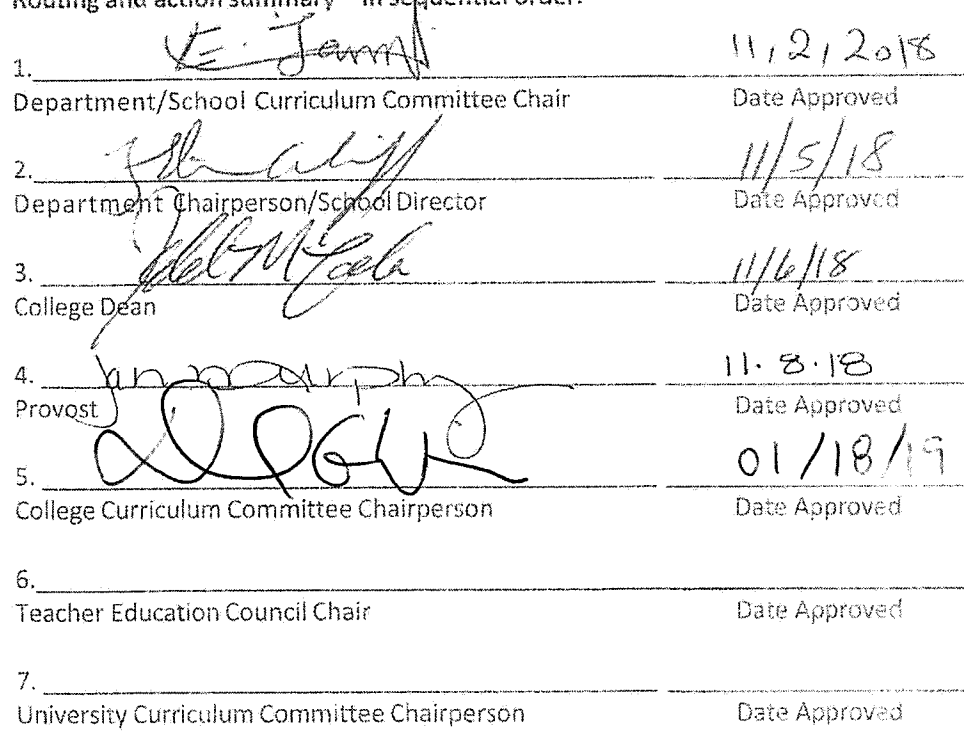 Routing and action summary – in sequential order:
1. E. 11, 2, 2018
Department/School Curriculum Committee Chair Date Approved
2. 11/5/18
Department Chairperson/School Director Date Approved
3. 11/6/18
College Dean Date Approved
4. 11.8.18
Provost Date Approved
5. 01/18/19
College Curriculum Committee Chairperson Date Approved
6.
Teacher Education Council Chair Date Approved
7.
University Curriculum Committee Chairperson Date Approved